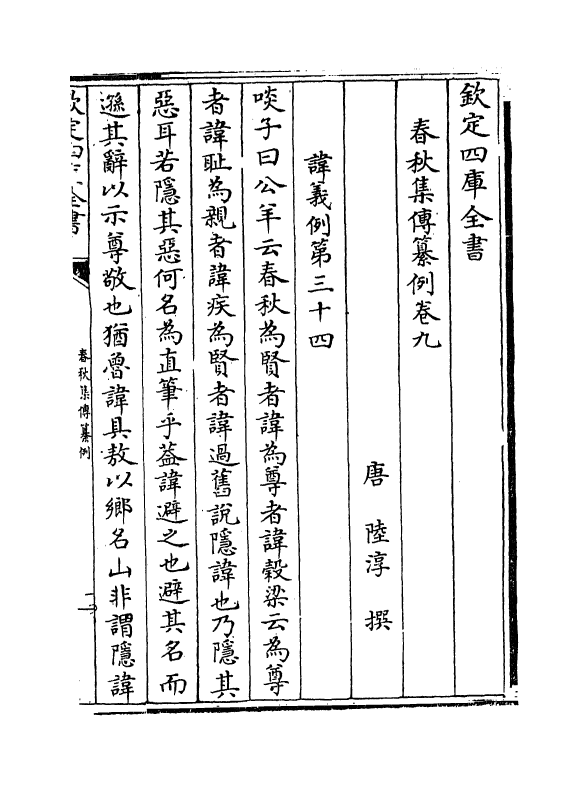 欽定四庫全書
春秋集傳纂例卷九
唐 陸淳 撰
諱義例第三十四
啖子曰公羊云春秋為賢者諱為尊者諱穀梁云為尊
者諱耻為親者諱疾為賢者諱過舊說隱諱也乃隱其
惡耳若隱其惡何名為直筆乎葢諱避之也避其名而
遜其辭以示尊敬也猶魯諱具敖以鄉名山非謂隱諱
欽定四庫全書
春秋集傳纂例